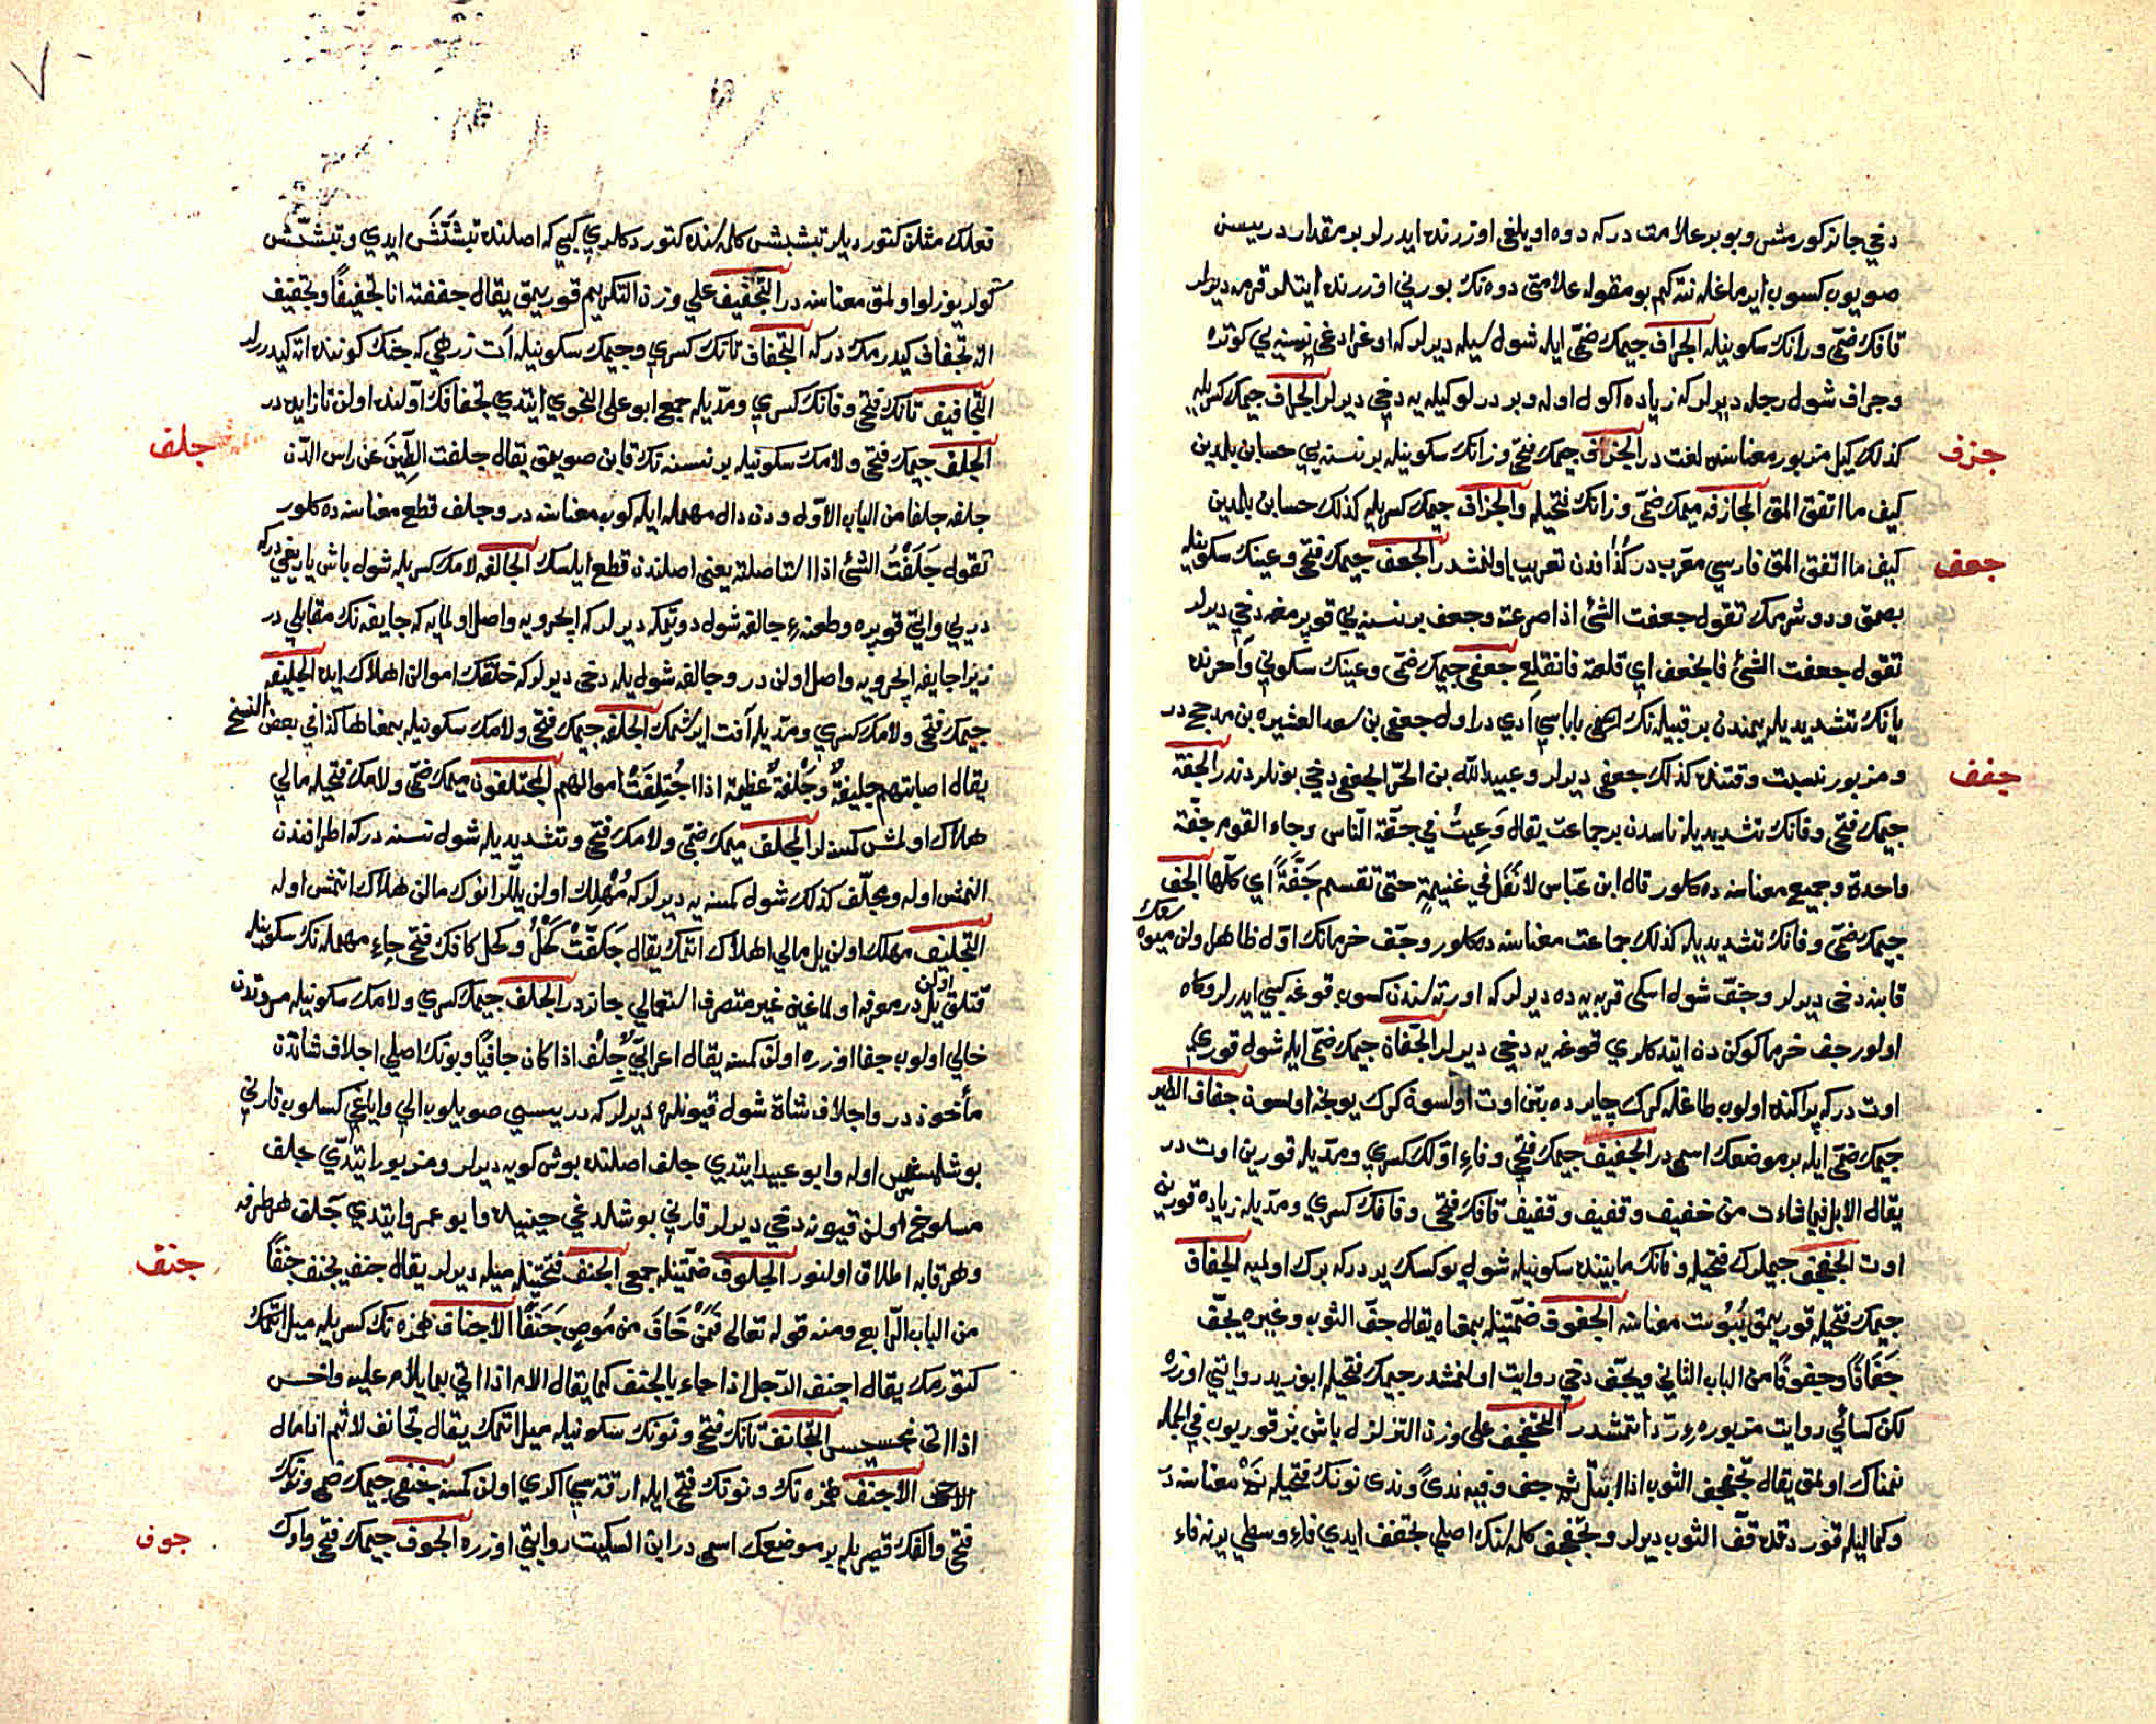 دخي جائز كورمش و بو بر علامت در كه دوه اويلغي اوزرنده ايدرلر بر مقدار دريسن
صويوب كسوب ايرماغله نته كيم بو مقوله علامتي دوه نك بورني اوزرنده ايتسلر قرمه ديرلر
قافك ضمّي و رانك سكونيله الجراف جيمك ضمّي ايله شول سيله ديرلر كه اوغرادغي نسنه يي كوتره
و جراف شول رجله ديرلر كه زياده اكول اوله و بر درلو كيله يه دخي ديرلر الجراف جيمك كسريله
جزف
كذلك كيل مزبور معناسنه لغت در الجزف جيمك فتحي و زانك سكونيله بر نسنه يي حسابن بلمدين
كيف ما اتفق المق المجازفه ميمك ضمّي و زانك فتحيله و الجزاف جيمك كسريله كذلك حسابن بلمدين
جعف
كيف ما اتفق المق فارسي معرب در كذافدن تعريب اولنمشدر الجعف جيمك فتحي و عينك سكونيله
بصمق و دوشرمك تقول جعفت الشئ اذا صرعته و جعف بر نسنه يي قوپرمغه دخي ديرلر
تقول جعفت الشئ فانجعف اي قلعته فانقلع جعفي جيمك ضمّي و عينك سكوني و آخرنده
يانك تشديديله يمندن بر قبيله نك اصلي باباسي آدي در اول جعفي بن سعد العشيره بن مذحج در
جفف
و مزبوره نسبت وقتنده كذلك جعفي ديرلر و عبيد الله بن الحرّ الجعفي دخي بونلردندر الجفّة
جيمك فتحي و فانك تشديديله ناسدن بر جماعت يقال دعيت في جفّة الناس و جاء القوم جفّة
واحدة و جميع معناسنه ده كلور قال ابن عبّاس لا نفل في غنيمة حتى تقسم جفّةً اي كلّها الجف
جيمك ضمّي و فانك تشديديله كذلك جماعت معناسنه ده كلور و جفّ خرمانك اوّل ظاهر اولن ميوه سنك
قابنه دخي ديرلر و جفّ شول اسكي قربه يه ده ديرلر كه اورته سندن كسوب قوغه كبي ايدرلر و كاه
اولور جف خرما كوكندن ايتدكلري قوغه يه دخي ديرلر الجفاف جيمك ضمّي ايله شول قوري
اوت در كه پراكنده اولوب طاغله كرك چايرده بتن اوت اولسون كرك يونجه اولسون جفاف الطير
جيمك ضمّي ايله بر موضعك اسمي در الجفيف جيمك فتحي و فاء اوّلك كسري و مدّيله قورين اوت در
يقال الابل فيما شاءت من جفيف و قفيف و قفيف قافك فتحي و فافك كسري و مدّيله زياده قورين
اوت الجفجف جيملرك فتحيله و فانك مابيننده سكونيله شول يوكسك يردر كه برك اولميه الجفاف
جيمك فتحيله قوريمق يبوست معناسنه الجفوف ضمّتينله بمعناه يقال جفّ الثوب و غيره يجفّ
جَفَافًا و جفوفًا من الباب الثاني و يجفّ دخي روايت اولنمشدر جيمك فتحيله ابو زيد روايتي اوزره
لكن كسائي روايت مزبوره يي ردّ اتمشدر التجفجف على وزن التزلزل ياش بز قوريوب في الجمله
نمناك اولمق يقال تجفجف الثوب اذا ابتلّ ثم جف و فيه ندىً و ندى نونك فتحيله نم معناسنه در
و كماليله قوردقده قفّ الثوب ديرلر و تجفجف كلمه سنك اصلي تجفف ايدي فاء وسطي يرنه فاء
فعلك مثلن كتورديلر تبشبش كلمه سنده كتوردكلري كبي كه اصلنده تبشّش ايدي و تبشبش
كولر يوزلو اولمق معناسنه در التجفيف على وزن التكريم قوريتمق يقال جففته انا تجفيفًا و تجفيف
اته تجفاف كيدرمك در كه التجفاف تانك كسري و جيمك سكونيله آت زرهي كه جنك كوننده اته كيدررلر
التجافيف تانك فتحي و فانك كسري و مدّيله جمع ابو على النحوي ايتدي تجفافك اوّلنده اولن تا زايده در
جلف
الجلف جيمك فتحي و لامك سكونيله بر نسنه نك قابن صويمق يقال جلفت الطينَ عن راس الدّن
جلفه جلفا من الباب الاوّل و دن دال مهمله ايله كوپ معناسنه در و جلف قطع معناسنه ده كلور
تقول جَلَفْتُ الشئ اذا استاصلته يعني اصلندن قطع ايلسك الجالفه لامك كسريله شول باش ياريغي در كه
دريي و اتي قوپره و طعنه ء جالفه شول دورتمكه ديرلر كه ايچرويه واصل اولميه كه جايفه نك مقابلي در
زيرا جايفه ايچرويه واصل اولن در و جالفه شول يله دخي ديرلر كه خلقك اموالن اهلاك ايده الجليفه
جيمك فتحي و لامك كسري و مدّيله آفت ايرشمك الجلفه جيمك فتحي و لامك سكونيله بمعناها كذا في بعض النسخ
يقال اصابتهم جليفةٌ و جَلْفةٌ عظيمة اذا اجْتُلِفَتْ اموالهم المجتلفون ميمك ضمّي و لامك فتحيله مالي
هلاك اولمش كمسنه لر المجلّف ميمك ضمّي و لامك فتحي و تشديديله شول نسنه در كه اطرافندن
النمش اوله و مجلّف كذلك شول كمسنه يه ديرلر كه مُهْلِك اولن يللّر انوك مالن هلاك اتمش اوله
التجليف مهلك اولن يل مالي اهلاك اتمك يقال جَلفَّتْ كَحْلُ و كحل كافك فتحي حاء مهمله نك سكونيله
قتلق اولن يل در معرفه اولماغين غير متصرف استعمالي جائزدر الجلف جيمك كسري و لامك سكونيله مروتدن
خالي اولوب جفا اوزره اولن كمسنه يقال اعرابيٌّ جِلْف اذا كان جافيًا و بونك اصلي اجلاف شاتدن
مأخوذ در و اجلاف شاة شول قيونلره ديرلر كه دريسي صويلوب الي و اياغي كسلوب قارني
بوشلمش اوله و ابو عبيد ايتدي جلف اصلنده بوش كوپه ديرلر و مزبور ايتدي جلف
مسلوخ اولن قيونه دخي ديرلر قارني بوشلدغي حينيله و ابو عمرو ايتدي جلف هر ظرفه
جنف
و هر قابه اطلاق اولنور الجلوف ضمّتينله جمع الجنف فتحتينله ميله ديرلر يقال جنف يجنف جنفًا
من الباب الرّابع و منه قوله تعالى فَمَنْ خَافَ من مُوصٍ جَنَفًا الاجناف همزه نك كسريله ميل اتمك
كتورمك يقال اجنف الرّجل اذا جاء بالجنف كما يقال الام اذا اتى بما يلام عليه و اخسّ
اذا اتى بخسيس التجانف تانك فتحي و نونك سكونيله ميل اتمك يقال تجانف لاثم اذا مال
الاجنف همزه نك و نونك فتحي ايله ارقه سي اكري اولن كمسنه جنفى جيمك ضمي و نونك
جوف
فتحي و الفك قصريله بر موضعك اسمي در ابن السكيت روايتي اوزره الجوف جيمك فتحي و واوك